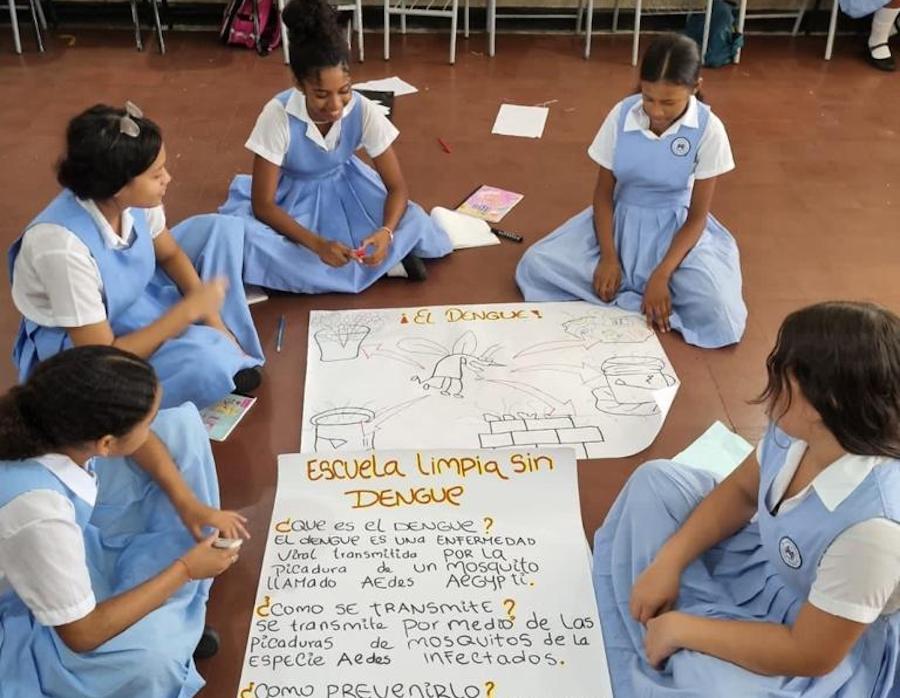 ¡EL DENGUE!
ESCUELA LIMPIA SIN
DENGUE
¿QUE ES EL DENGUE?
EL DENGUE ES UNA ENFERMEDAD
VIRAL transmitida POR LA
PICADURA DE UN MOSQUITO
LLAMADO AEDES AEGYPTI.
¿COMO SE TRANSMITE?
Se transmite por medio de las
PICADURAS de MOSQUITOS de la
ESPECIE Aedes INFECTADOS.
¿COMO PREVENIRLO?